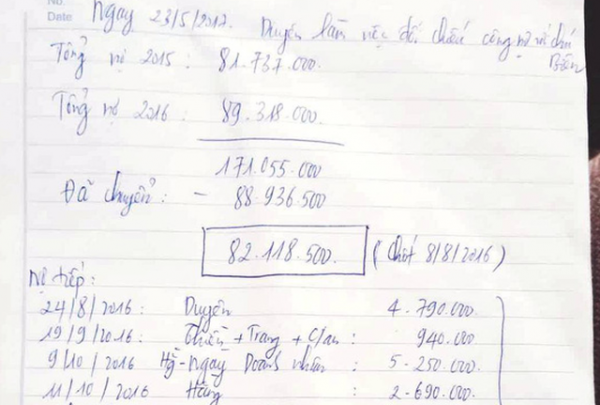 No
Date Ngày 23/5/2017. Duyên làm việc đối chiếu công nợ với chú Biên
Tổng nợ 2015 : 81.737.000.
Tổng nợ 2016 : 89.318.000.
171.055.000
Đã chuyển : - 88.936.500
82.118.500. (chốt 8/8/2016)
Nợ tiếp :
24/8/2016 : Duyên 4.790.000.
19/9/2016 : Thiên + Trang + C/an : 940.000.
9/10/2016 Hg - ngày Doanh nhân : 5-250.000
11/10/2016 Hằng : 2-690.000